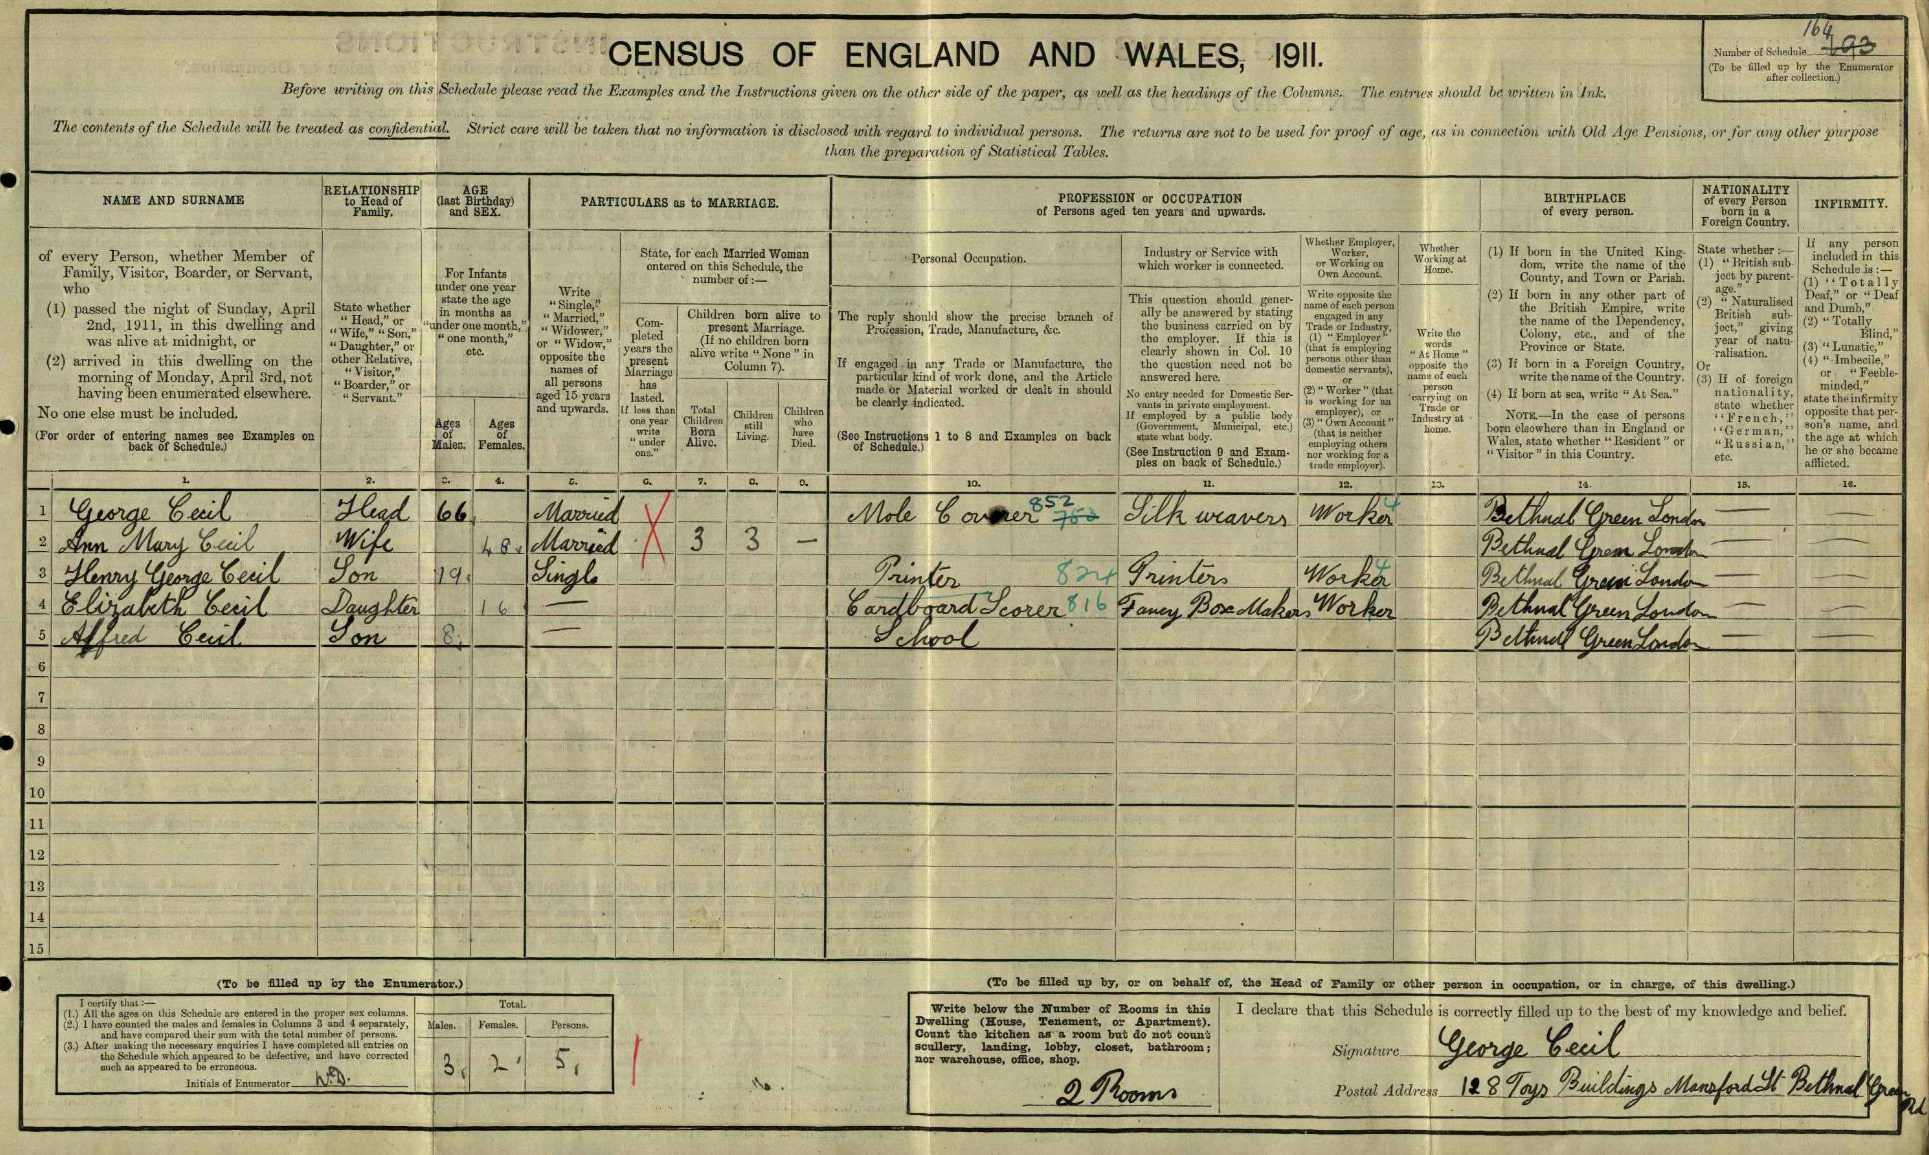 CENSUS OF ENGLAND AND WALES, 1911.
164
Number of Schedule 193
(To be filled up by the Enumerator
after collection.)
Before writing on this Schedule please read the Examples and the Instructions given on the other side of the paper, as well as the headings of the Columns. The entries should be written in Ink.
The contents of the Schedule will be treated as confidential. Strict care will be taken that no information is disclosed with regard to individual persons. The returns are not to be used for proof of age, as in connection with Old Age Pensions, or for any other purpose
than the preparation of Statistical Tables.
NAME AND SURNAME
of every Person, whether Member of
Family, Visitor, Boarder, or Servant,
who
(1) passed the night of Sunday, April
2nd, 1911, in this dwelling and
was alive at midnight, or
(2) arrived in this dwelling on the
morning of Monday, April 3rd, not
having been enumerated elsewhere.
No one else must be included.
(For order of entering names see Examples on
back of Schedule.)
RELATIONSHIP
to Head of
Family.
State whether
"Head," or
"Wife," "Son,"
"Daughter," or
other Relative,
"Visitor,"
"Boarder," or
"Servant."
AGE
(last Birthday)
and SEX.
For Infants
under one year
state the age
in months as
"under one month,"
"one month,"
etc.
Ages
of
Males.
Ages
of
Females.
PARTICULARS as to MARRIAGE.
Write
"Single,"
"Married,"
"Widower,"
or "Widow,"
opposite the
names of
all persons
aged 15 years
and upwards.
State, for each Married Woman
entered on this Schedule, the
number of:—
Com-
pleted
years the
present
Marriage
has
lasted.
If less than
one year
write
"under
one."
Children born alive to
present Marriage.
(If no children born
alive write "None" in
Column 7).
Total
Children
Born
Alive.
Children
still
Living.
Children
who
have
Died.
PROFESSION or OCCUPATION
of Persons aged ten years and upwards.
Personal Occupation.
The reply should show the precise branch of
Profession, Trade, Manufacture, &c.
If engaged in any Trade or Manufacture, the
particular kind of work done, and the Article
made or Material worked or dealt in should
be clearly indicated.
(See Instructions 1 to 8 and Examples on back
of Schedule.)
Industry or Service with
which worker is connected.
This question should gener-
ally be answered by stating
the business carried on by
the employer. If this is
clearly shown in Col. 10
the question need not be
answered here.
No entry needed for Domestic Ser-
vants in private employment.
If employed by a public body
(Government, Municipal, etc.)
state what body.
(See Instruction 9 and Exam-
ples on back of Schedule.)
Whether Employer,
Worker,
or Working on
Own Account.
Write opposite the
name of each person
engaged in any
Trade or Industry,
(1) "Employer"
(that is employing
persons other than
domestic servants),
or
(2) "Worker" (that
is working for an
employer), or
(3) "Own Account"
(that is neither
employing others
nor working for a
trade employer).
Whether
Working at
Home.
Write the
words
"At Home"
opposite the
name of each
person
carrying on
Trade or
Industry at
home.
BIRTHPLACE
of every person.
(1) If born in the United King-
dom, write the name of the
County, and Town or Parish.
(2) If born in any other part of
the British Empire, write
the name of the Dependency,
Colony, etc., and of the
Province or State.
(3) If born in a Foreign Country,
write the name of the Country.
(4) If born at sea, write "At Sea."
NOTE.—In the case of persons
born elsewhere than in England or
Wales, state whether "Resident" or
"Visitor" in this Country.
NATIONALITY
of every Person
born in a
Foreign Country.
State whether:—
(1) "British sub-
ject by parent-
age."
(2) "Naturalised
British sub-
ject," giving
year of natu-
ralisation.
Or
(3) If of foreign
nationality,
state whether
"French,"
"German,"
"Russian,"
etc.
INFIRMITY.
If any person
included in this
Schedule is:—
(1) "Totally
Deaf," or "Deaf
and Dumb,"
(2) "Totally
Blind,"
(3) "Lunatic,"
(4) "Imbecile,"
or "Feeble-
minded,"
state the infirmity
opposite that per-
son's name, and
the age at which
he or she became
afflicted.
1. 2. 3. 4. 5. 6. 7. 8. 9. 10. 11. 12. 13. 14. 15. 16.
1 George Cecil Head 66 Married Mole Coverer 852 Silk weavers Worker 4 Bethnal Green London — —
2 Ann Mary Cecil Wife 48 Married 3 3 — Bethnal Green London — —
3 Henry George Cecil Son 19 Single Printer 824 Printers Worker 4 Bethnal Green London — —
4 Elizabeth Cecil Daughter 16 — Cardboard Scorer 816 Fancy Box Makers Worker Bethnal Green London — —
5 Alfred Cecil Son 8 — School Bethnal Green London — —
6
7
8
9
10
11
12
13
14
15
(To be filled up by the Enumerator.)
I certify that:—
(1.) All the ages on this Schedule are entered in the proper sex columns.
(2.) I have counted the males and females in Columns 3 and 4 separately,
and have compared their sum with the total number of persons.
(3.) After making the necessary enquiries I have completed all entries on
the Schedule which appeared to be defective, and have corrected
such as appeared to be erroneous.
Initials of Enumerator W.D.
Total.
Males. Females. Persons.
3 2 5
(To be filled up by, or on behalf of, the Head of Family or other person in occupation, or in charge, of this dwelling.)
Write below the Number of Rooms in this
Dwelling (House, Tenement, or Apartment).
Count the kitchen as a room but do not count
scullery, landing, lobby, closet, bathroom;
nor warehouse, office, shop.
2 Rooms
I declare that this Schedule is correctly filled up to the best of my knowledge and belief.
Signature George Cecil
Postal Address 128 Toys Buildings Mansford St Bethnal Green Rd